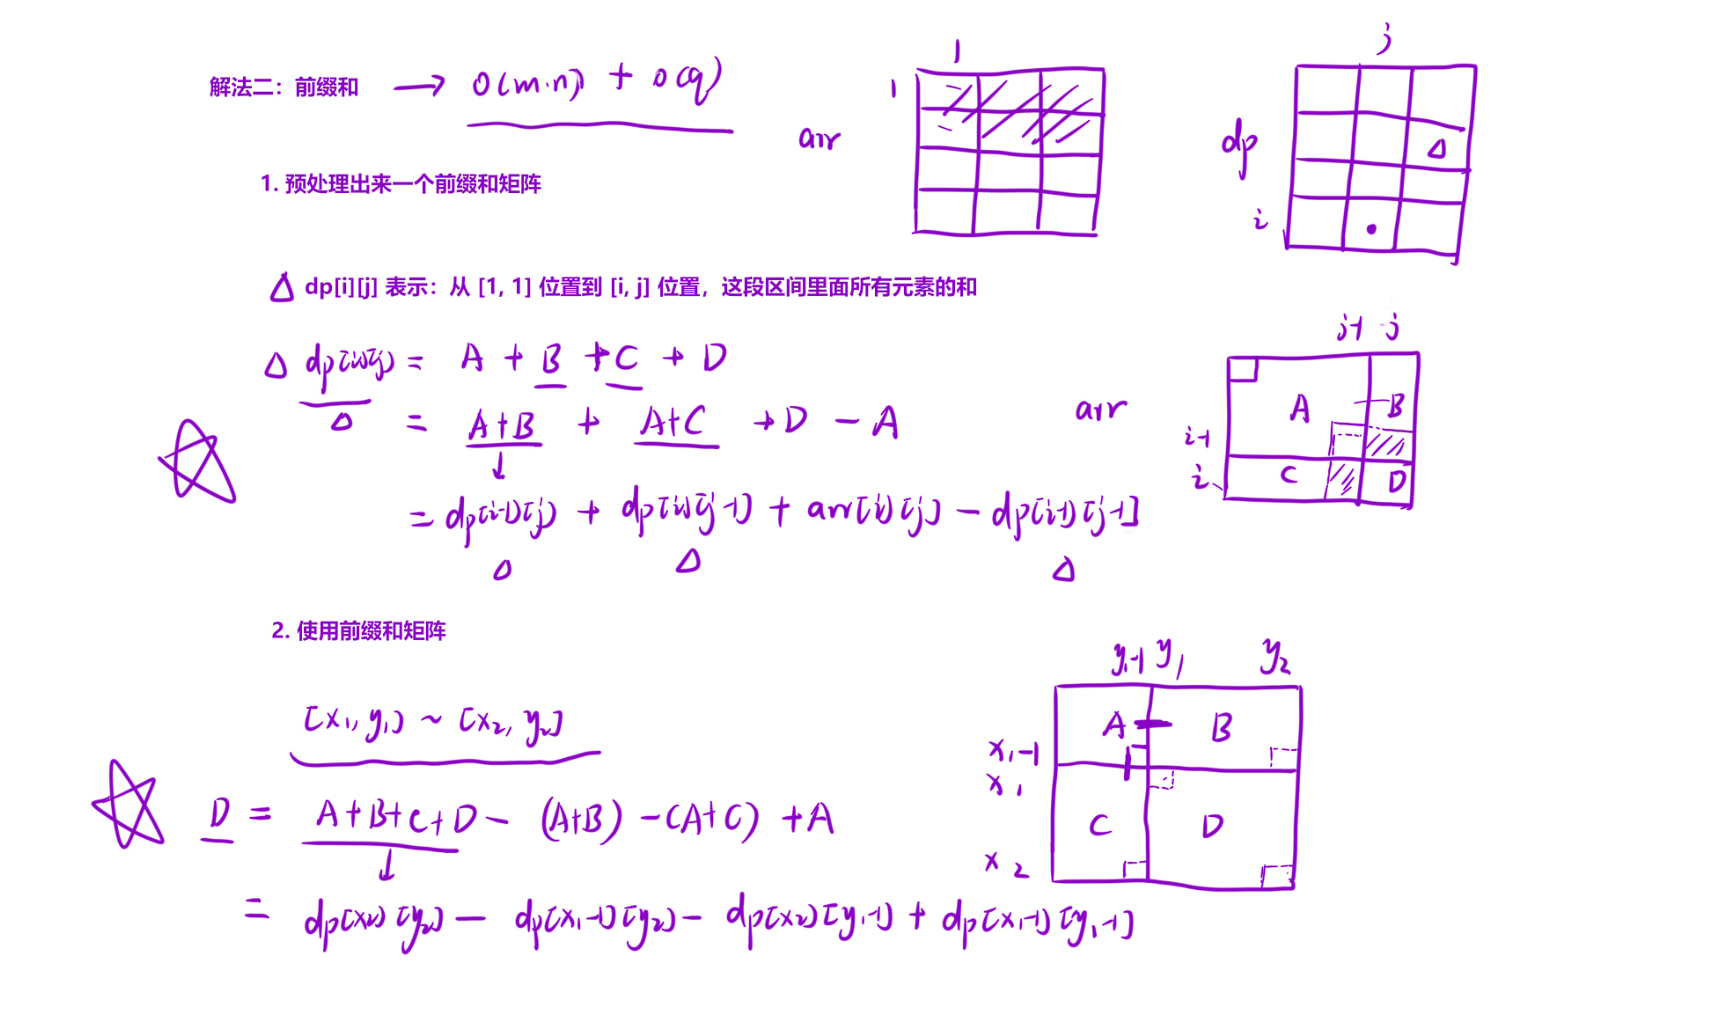 解法二：前缀和 → O(m·n) + O(q)
1
1
arr
j
dp
i
1. 预处理出来一个前缀和矩阵
dp[i][j] 表示：从 [1, 1] 位置到 [i, j] 位置，这段区间里面所有元素的和
dp[i][j] = A + B + C + D
= A+B + A+C + D - A
= dp[i-1][j] + dp[i][j-1] + arr[i][j] - dp[i-1][j-1]
j-1 j
arr
A B
i-1
i C D
2. 使用前缀和矩阵
[x₁, y₁] ~ [x₂, y₂]
D = A+B+C+D - (A+B) - (A+C) + A
= dp[x₂][y₂] - dp[x₁-1][y₂] - dp[x₂][y₁-1] + dp[x₁-1][y₁-1]
y₁-1 y₁ y₂
A B
x₁-1
x₁
C D
x₂